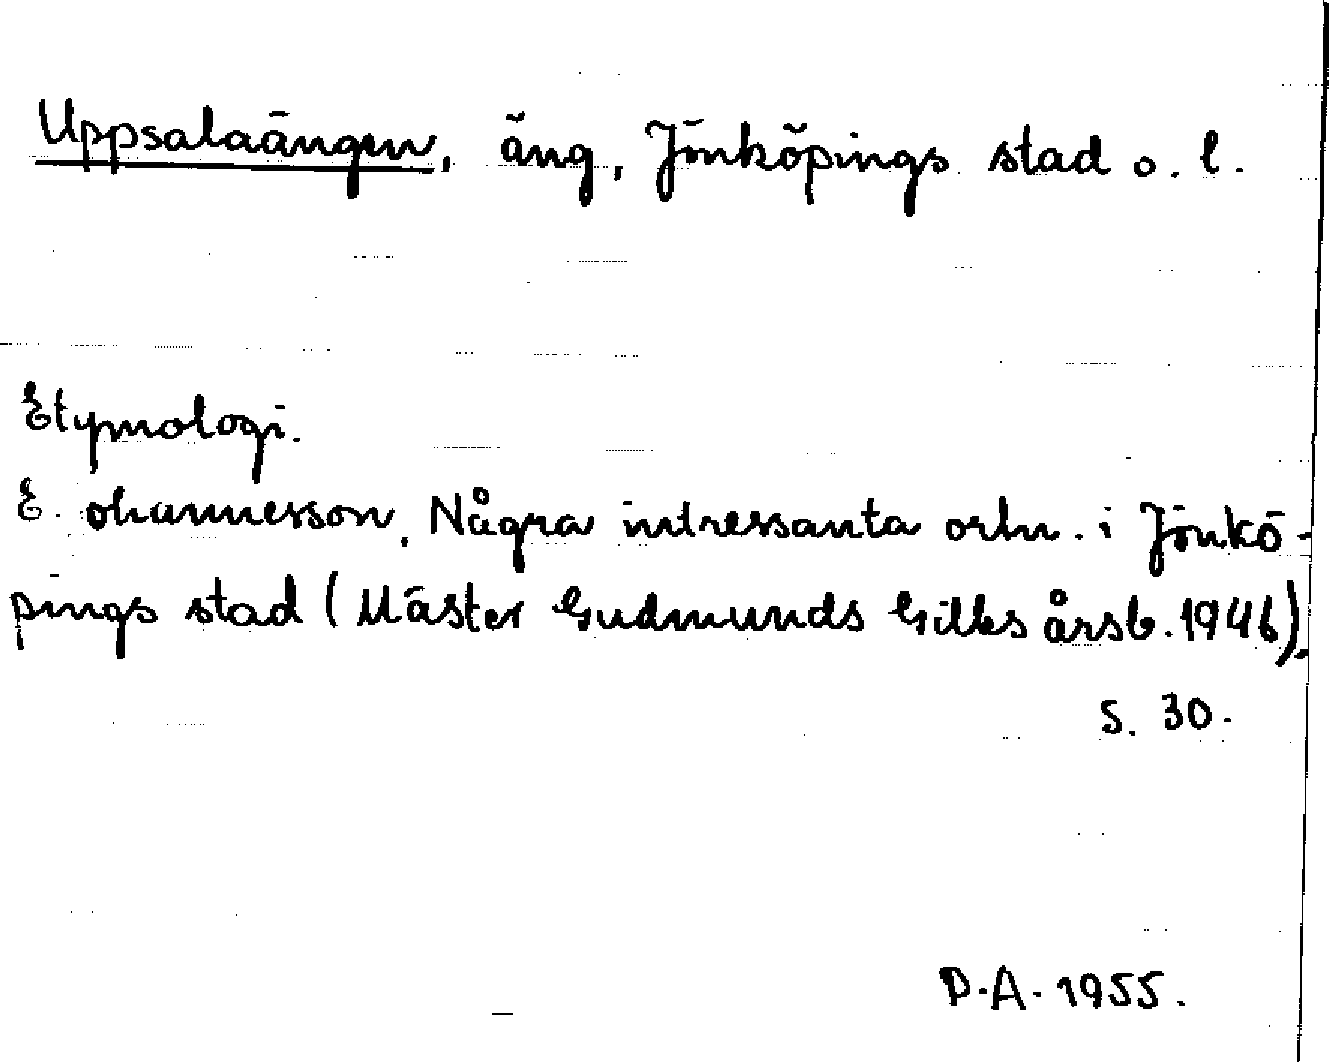 Uppsalaängen, äng, Jönköpings stad o. l.
Etymologi.
E. ohannesson, Några intressanta ortn. i Jönkö-
pings stad (Mäster Gudmunds Gilles årsb. 1946),
S. 30.
D.A. 1955.